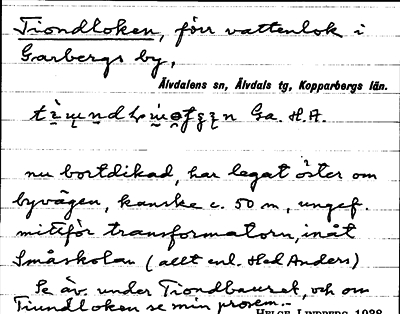 Tiondloken, förr vattenlok i
Garbergs by,
Älvdalens sn, Älvdals tg, Kopparbergs län.
Ga. H.A.
nu bortdikad, har legat öster om
byvägen, kanske c. 50 m, ungef.
mittför transformatorn, inåt
Småskolan (allt enl. Hed Anders)
Se äv. under Tiondbauret, och om
Tiundloken se min prosem.-
HELGE LINDBERG 1938